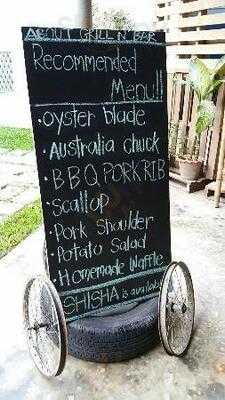 ABOUT GRILL N BAR
Recommended
Menu!!
• oyster blade
• Australia chuck
• BBQ PORK RIB
• Scallop
• Pork Shoulder
• Potato Salad
• Homemade Waffle
SHISHA is available